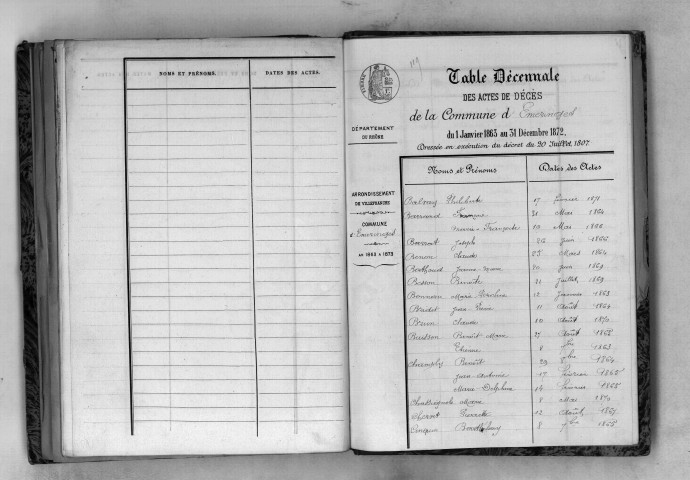 NOMS ET PRÉNOMS.
DATES DES ACTES.
119
Table Décennale
DES ACTES DE DÉCÈS
de la Commune d'Emeringes
du 1 Janvier 1863 au 31 Décembre 1872,
Dressée en exécution du décret du 20 Juillet 1807
DÉPARTEMENT
DU RHÔNE
ARRONDISSEMENT
DE VILLEFRANCHE
COMMUNE
d'Emeringes
DE 1863 A 1873
Noms et Prénoms
Dates des Actes
Philibert 17 février 1871
Françoise 21 Mai 1864
Marie-Françoise 10 Mai
Joseph Juin 1866
Benon Claude 25 Mars 1864
Berthaud Jeanne Juin 1869
Besson Benoît 21 Juillet 1869
Marie 12 Janvier 1863
Bridet Jean Pierre 11 Août 1869
Brun Claude 10 Août 1870
Buisson Benoît Marie Août 1868
Etienne 8 1863
Benoît 29 1864
Jean Antoine 17 Février 1865
Marie Delphine 14 Février 1868
Marie 8 Mai 1870
Pierrette 12 Août 1867
Cinquin Barthélemy 8 7bre 1865